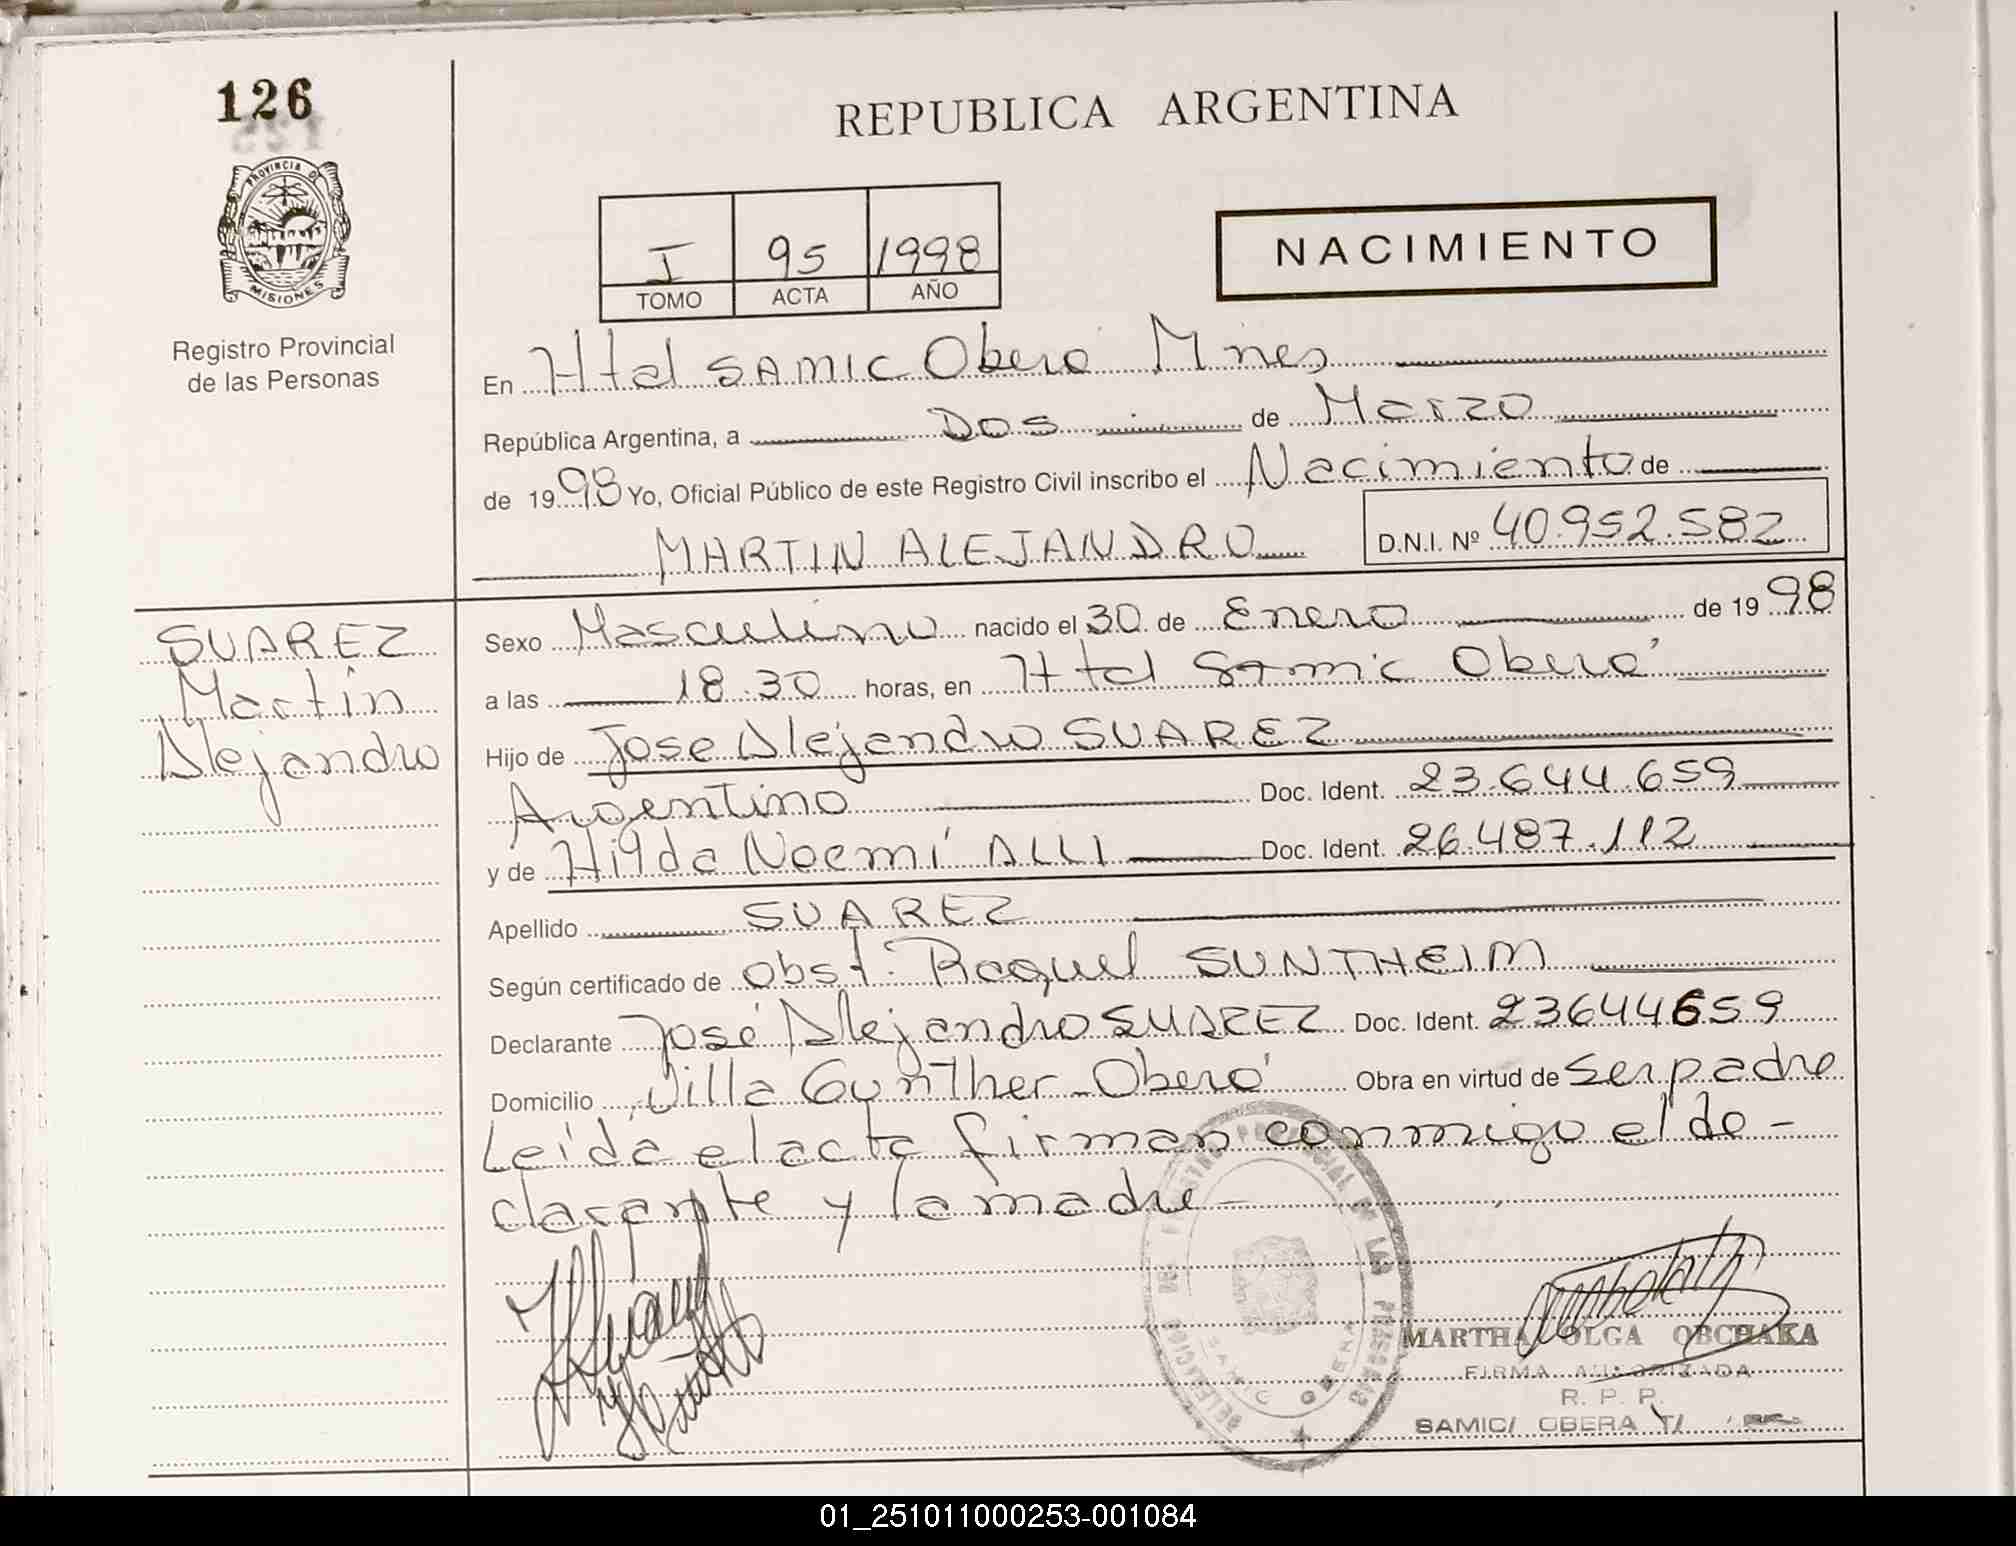 126
PROVINCIA DE
MISIONES
Registro Provincial
de las Personas
REPUBLICA ARGENTINA
I 95 1998
TOMO ACTA AÑO
NACIMIENTO
En Htal SAMIC Oberá Mnes
República Argentina, a Dos de Marzo
de 1998 Yo, Oficial Público de este Registro Civil inscribo el Nacimiento de
MARTIN ALEJANDRO D.N.I. Nº 40.952.582
SUAREZ
Martín
Alejandro
Sexo Masculino nacido el 30 de Enero de 1998
a las 18.30 horas, en Htal Samic Oberá
Hijo de Jose Alejandro SUAREZ
Argentino Doc. Ident. 23.644.659
y de Hilda Noemí ALLI Doc. Ident. 26.487.112
Apellido SUAREZ
Según certificado de obst. Raquel SUNTHEIM
Declarante José Alejandro SUAREZ Doc. Ident. 23644659
Domicilio Villa Gunther - Oberá Obra en virtud de ser padre
Leída el acta firman conmigo el de-
clarante y la madre
MARTHA OLGA OBCHAKA
FIRMA AUTORIZADA
R. P. P.
SAMIC/ OBERA
01_251011000253-001084